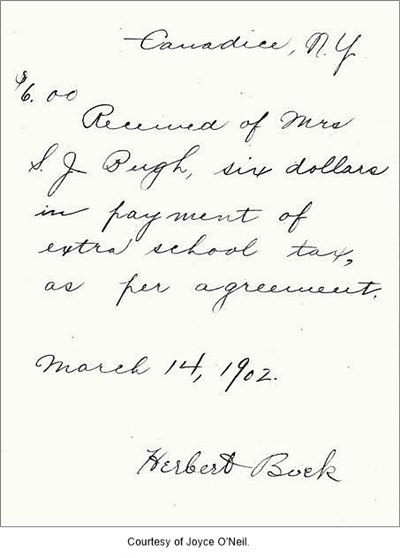 Canadice, N.Y
$6.00
Received of Mrs
S. J Pugh, six dollars
in payment of
extra school tax,
as per agreement.
March 14, 1902.
Herbert Bock
Courtesy of Joyce O'Neil.